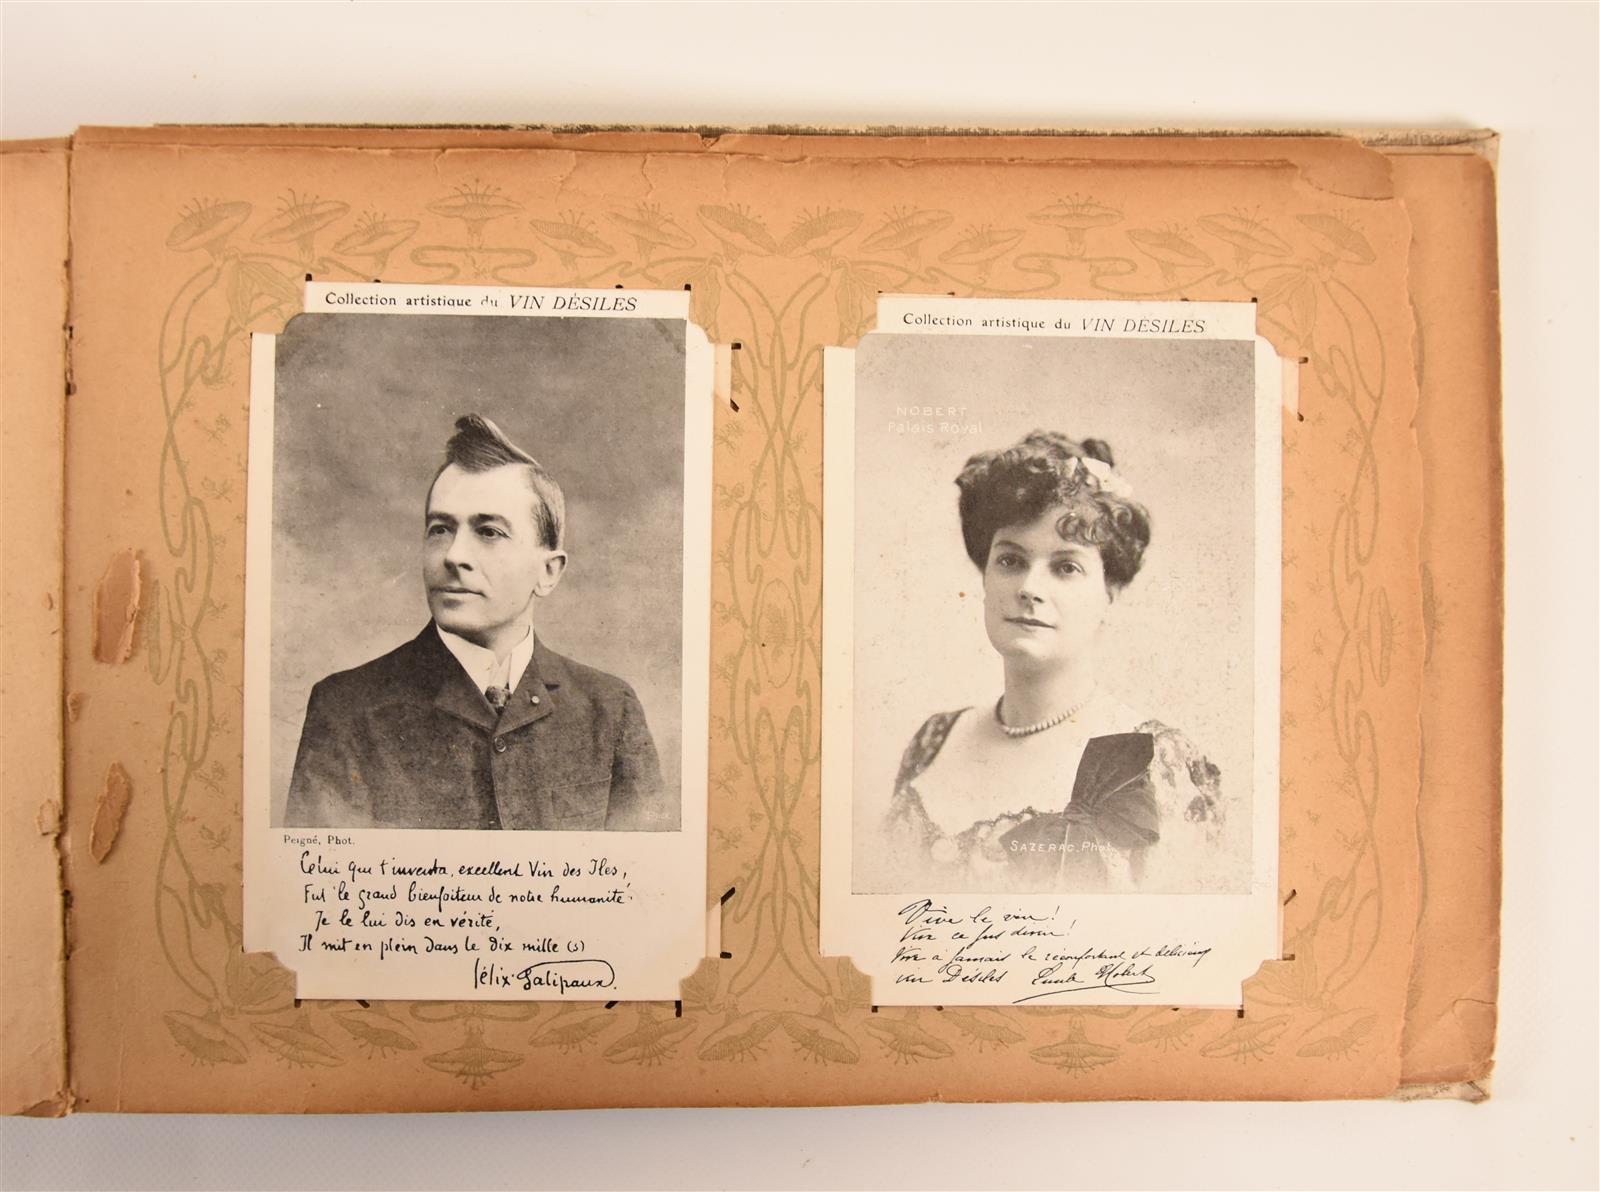 Collection artistique du VIN DÉSILES
Peigné, Phot.
Celui qui t'inventa, excellent Vin des Iles,
Fut le grand bienfaiteur de notre humanité.
Je le lui dis en vérité,
Il mit en plein dans le dix mille (s)
félix Galipaux.
Collection artistique du VIN DÉSILES
NOBERT
Palais Royal
SAZERAC. Phot.
Vive le vin!
Vive ce jus divin!
Vive à jamais le réconfortant et délicieux
vin Désiles Nobert